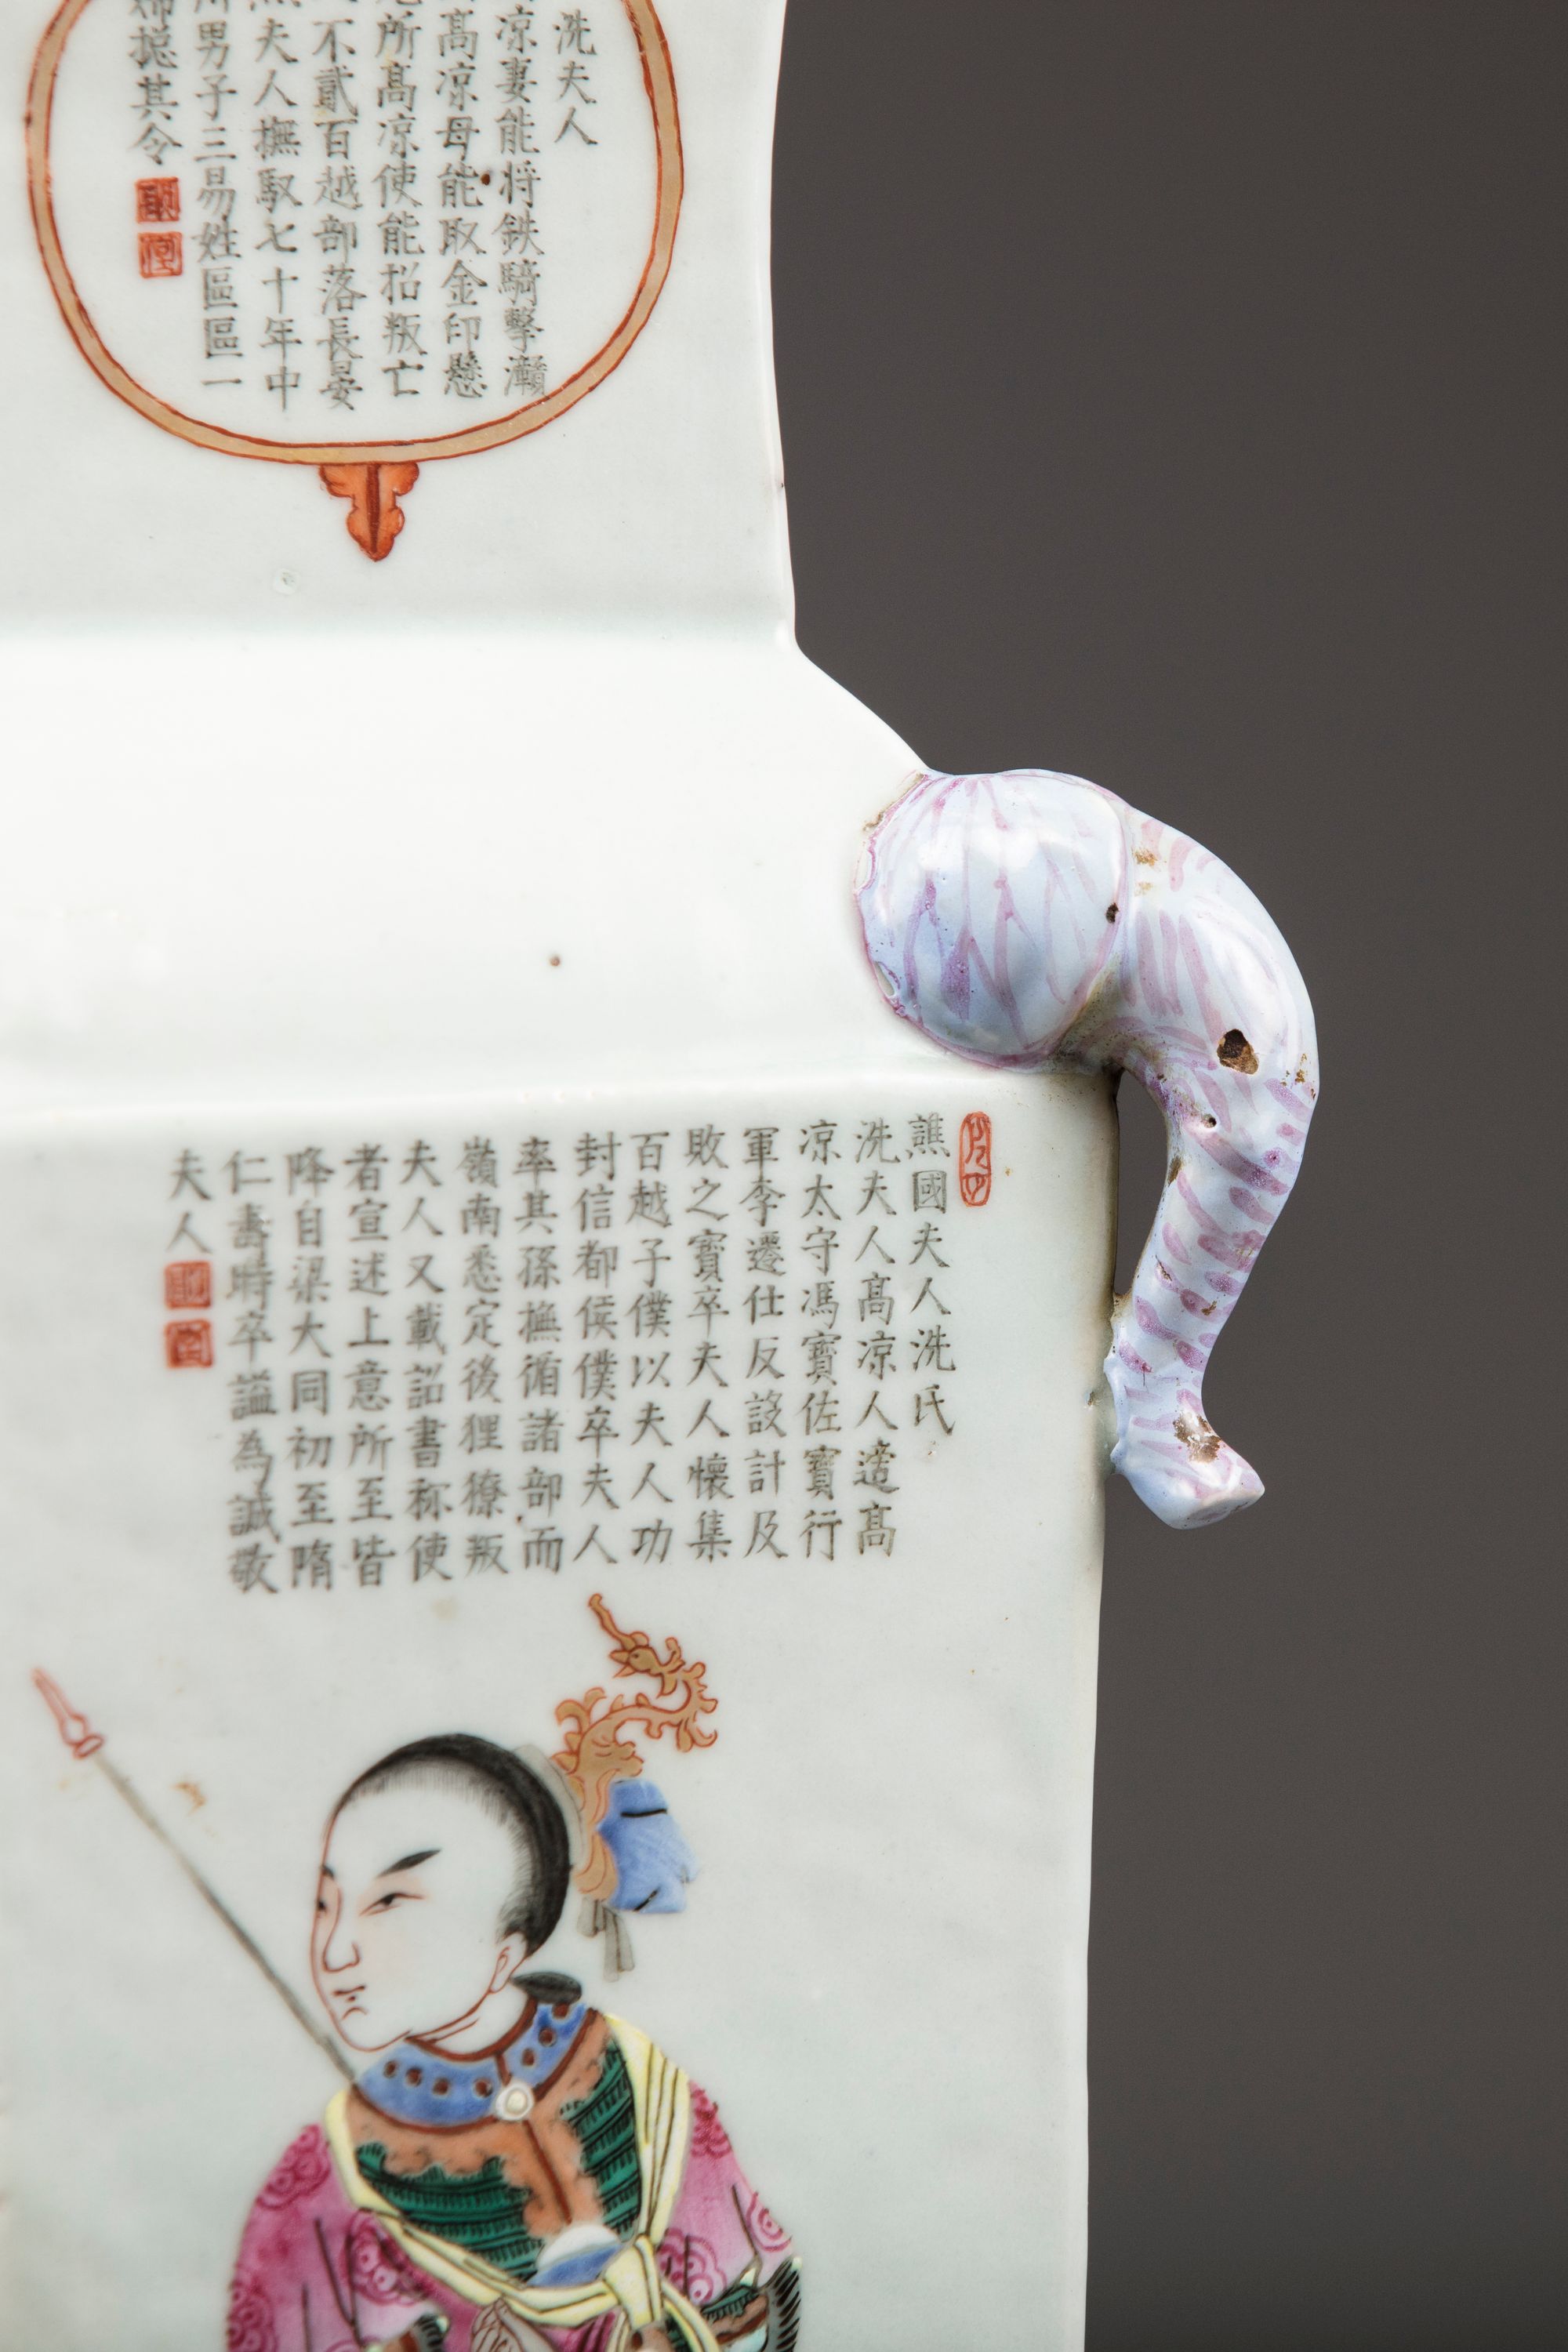 洗夫人
凉妻能将鉄騎擊瀨
髙凉母能取金印懸
所髙凉使能招叛亡
不貳百越部落長晏
夫人撫馭七十年中
男子三易姓區區一
揔其令
譙國夫人洗氏
洗夫人髙凉人適髙
凉太守馮寳佐寳行
軍李遷仕反設計及
敗之寳卒夫人懷集
百越子僕以夫人功
封信都侯僕卒夫人
率其孫撫循諸部而
嶺南悉定後狸獠叛
夫人又載詔書称使
者宣述上意所至皆
降自梁大同初至隋
仁壽時卒謚為誠敬
夫人